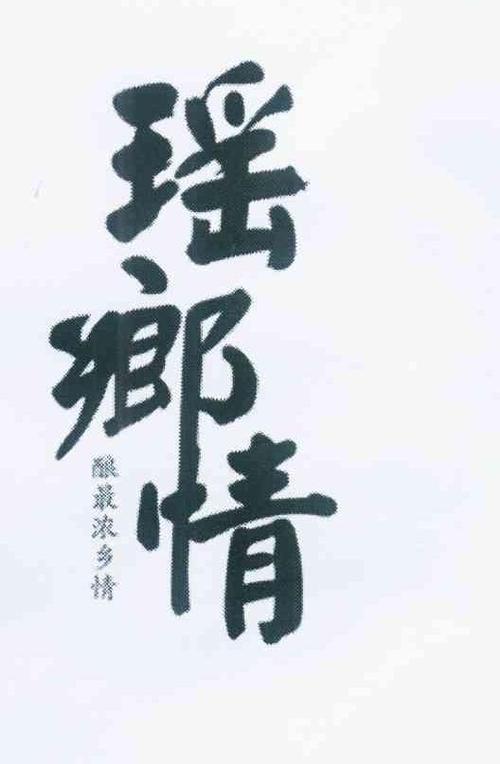 瑶鄉情
酿最浓乡情